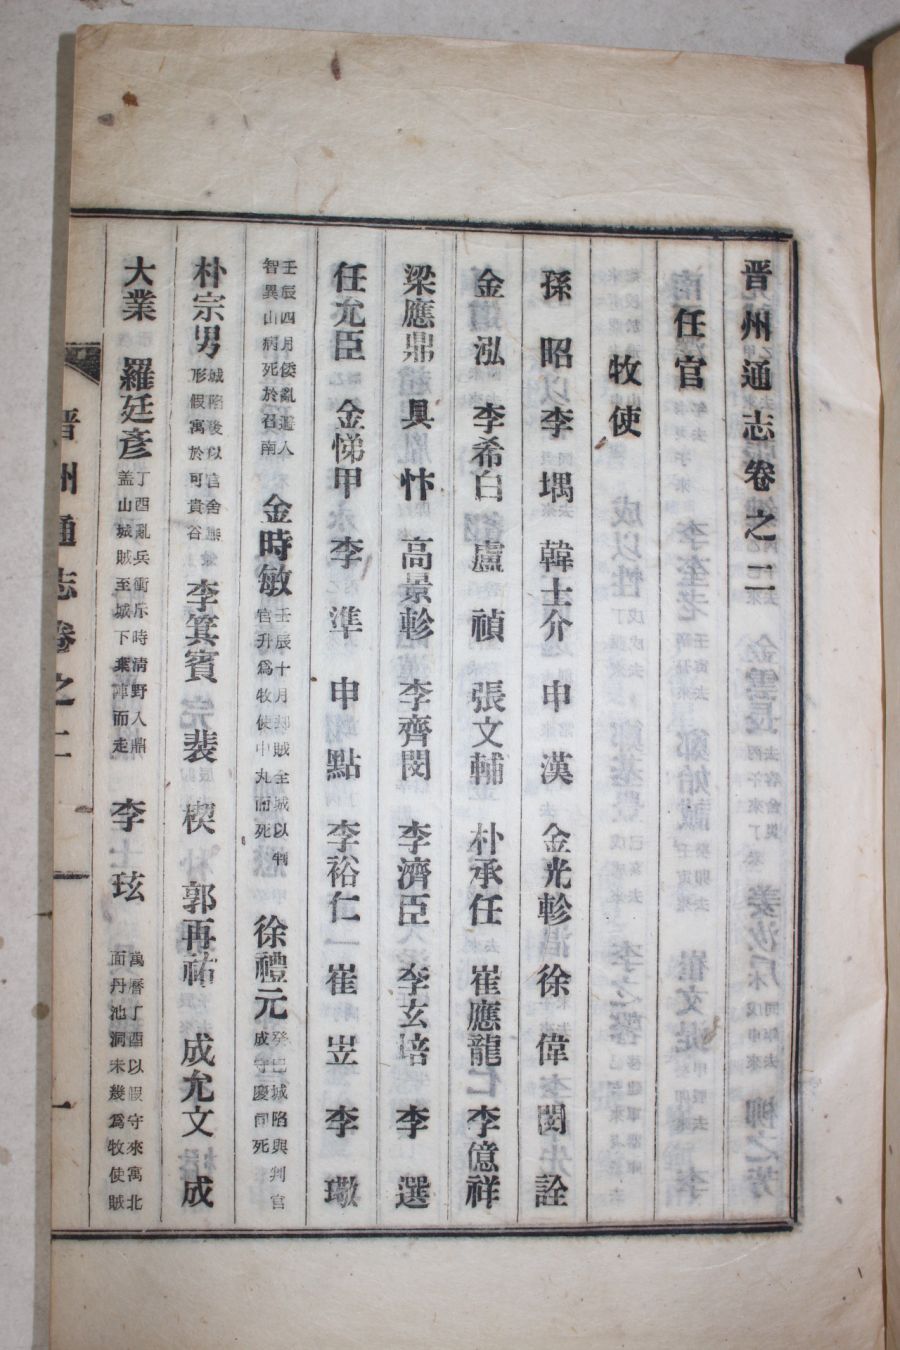 晋州通志卷之二
任官
牧使
孫昭 李堣 韓士介 申漢 金光軫 徐偉 閔詮
金泓 李希白 盧禎 張文輔 朴承任 崔應龍 李億祥
梁應鼎 具忭 高景軫 李齊閔 李濟臣 李玄培 李選
任允臣 金悌甲 李準 申點 李裕仁 崔岦 李璥
壬辰四月倭亂遯入智異山病死於召南 金時敏 壬辰十月却賊全城以判官升爲牧使中丸而死 徐禮元 癸巳城陷與判官成守慶同死
朴宗男 城陷後以官舍無形假寓於可貴谷 李箕賓 裴楔 郭再祐 成允文 成
大業 羅廷彥 丁酉亂兵衝斥時淸野入鼎盖山城賊至城下棄陣而走 李玹 萬曆丁酉以假守來寓北面丹池洞未幾爲牧使賊
晋州通志卷之二 一